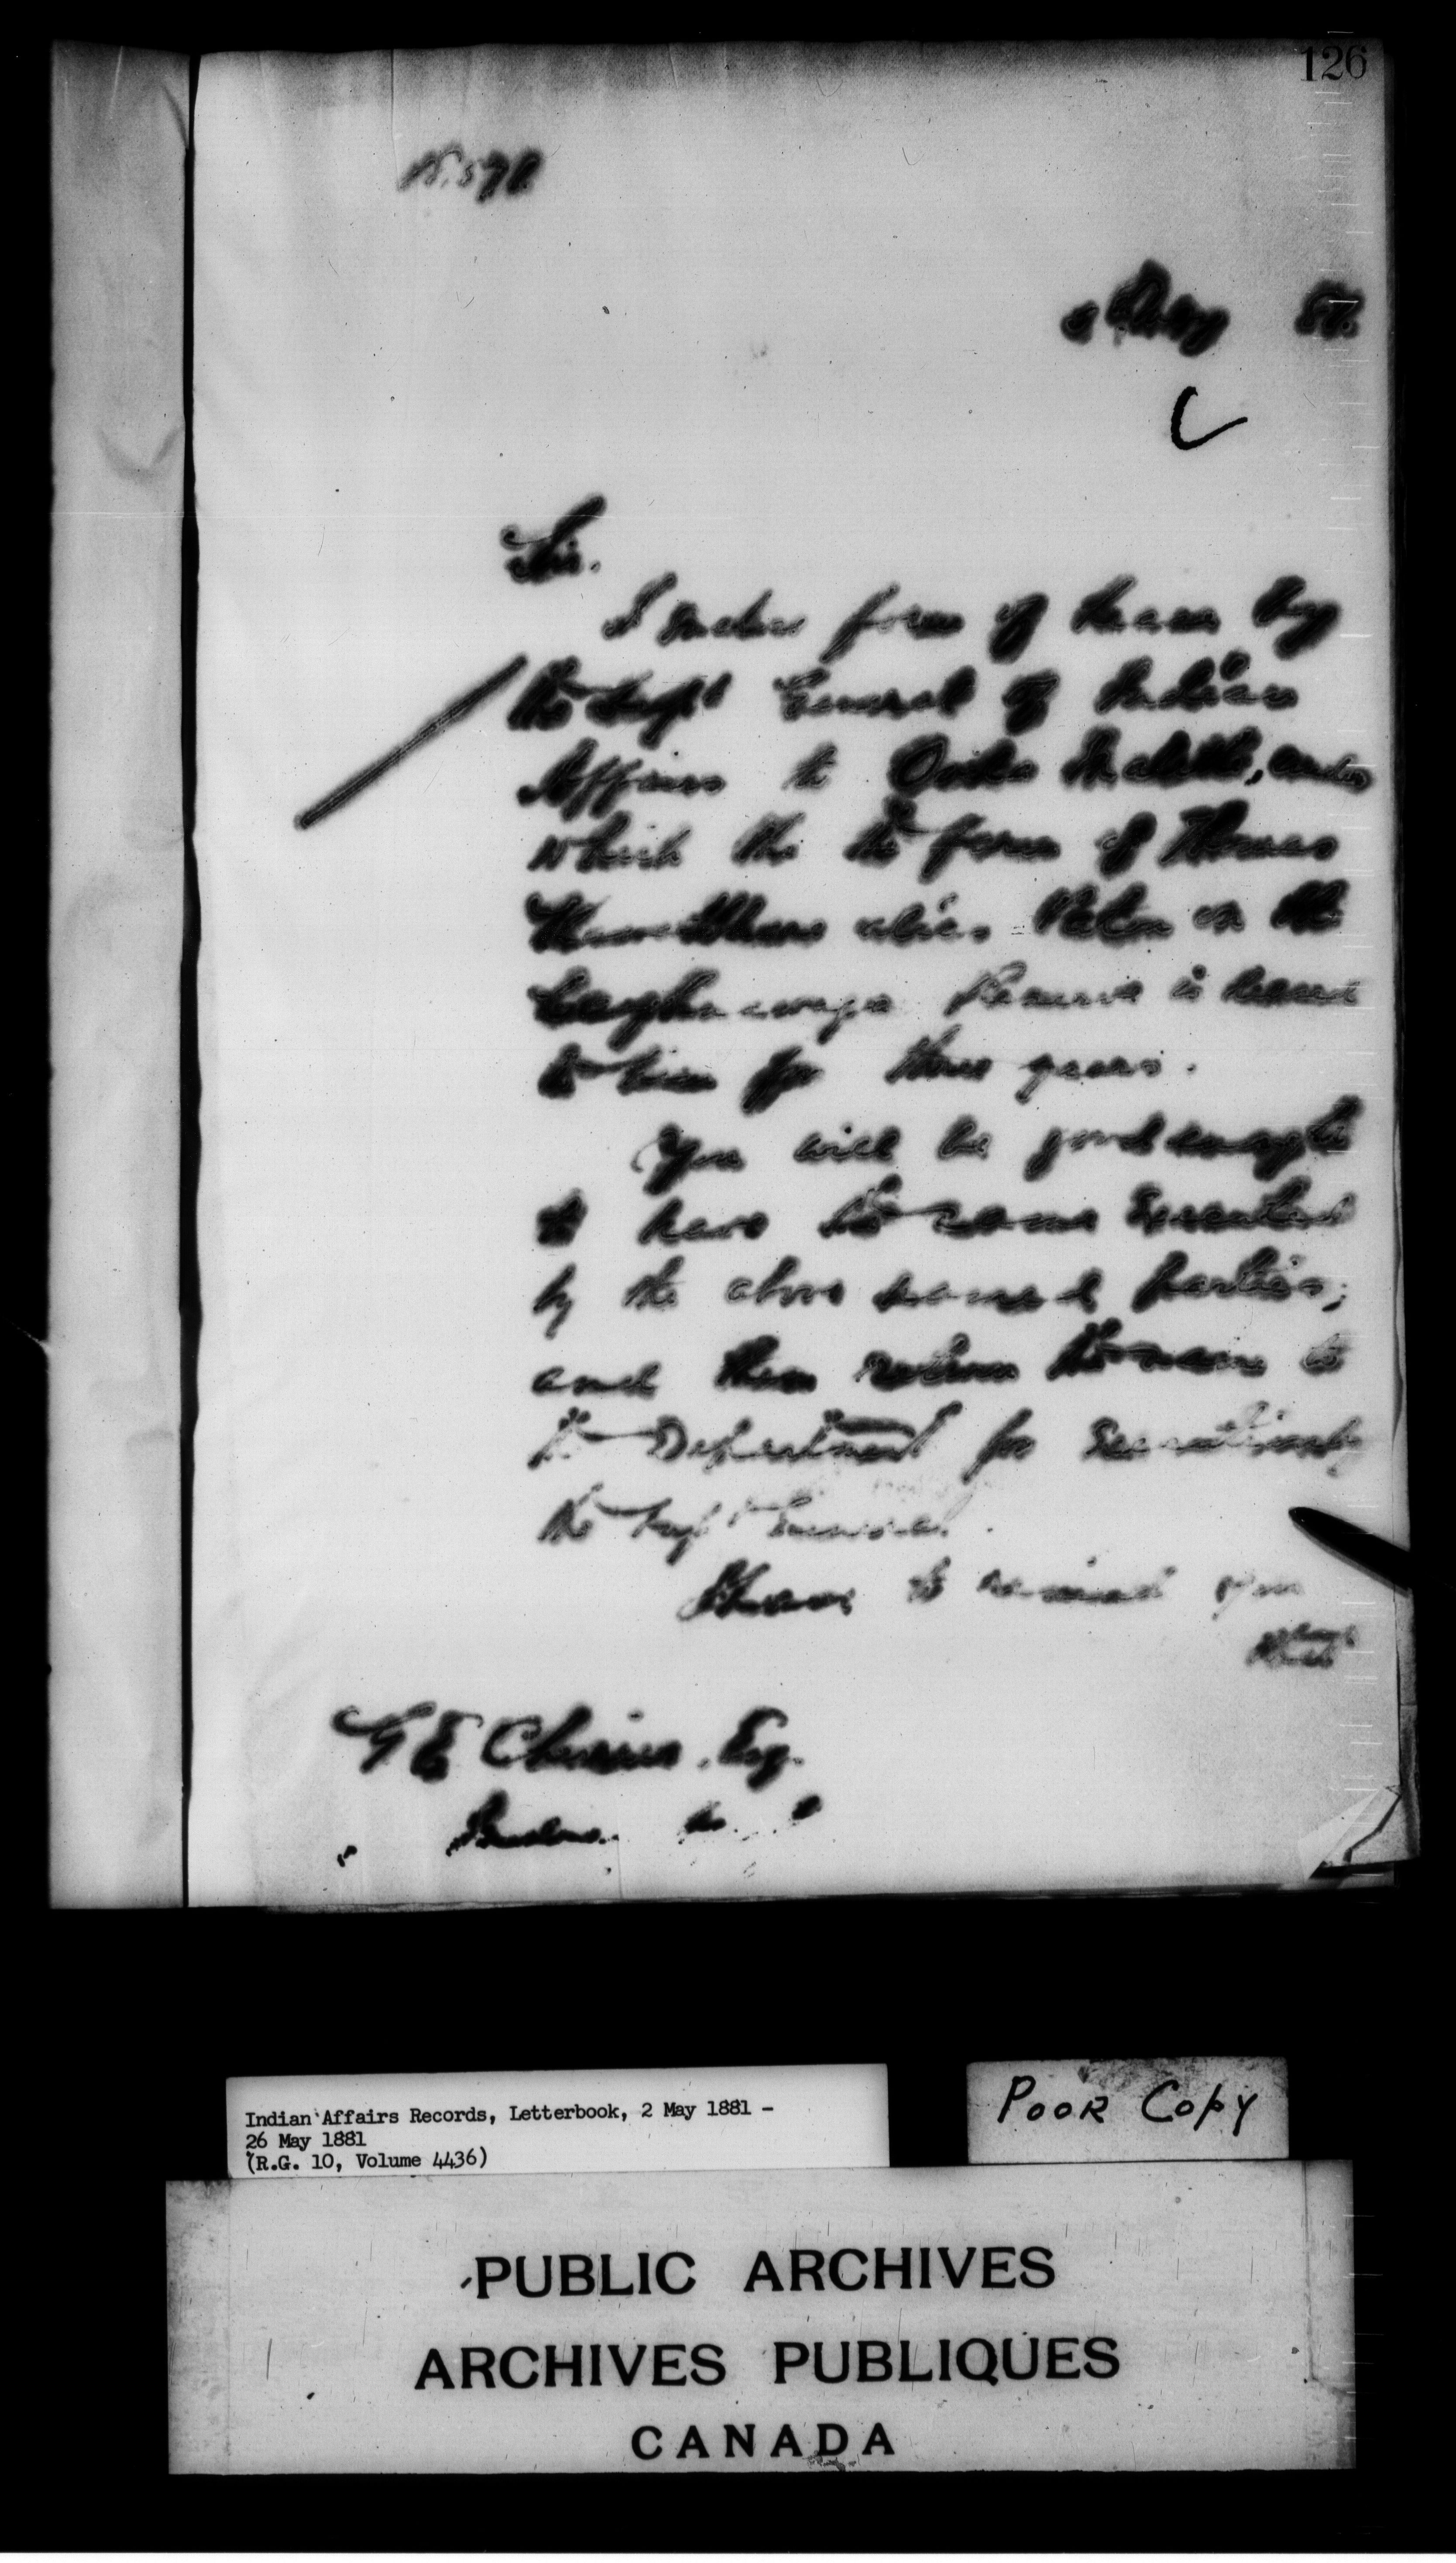 126
May 81.
Sir.
I enclose form of Lease by
the Supt General of Indian
Affairs to
which the the farm of Thomas
alias on the
Caughnawaga Reserve is leased
to him for three years.
You will be good enough
to have the same executed
by the above named parties,
and then return the same to
the Department for execution by
the Supt General.
to remind you
G E Cherrier. Esq.
Indian
Indian Affairs Records, Letterbook, 2 May 1881 -
26 May 1881
(R.G. 10, Volume 4436)
POOR COPY
PUBLIC ARCHIVES
ARCHIVES PUBLIQUES
CANADA